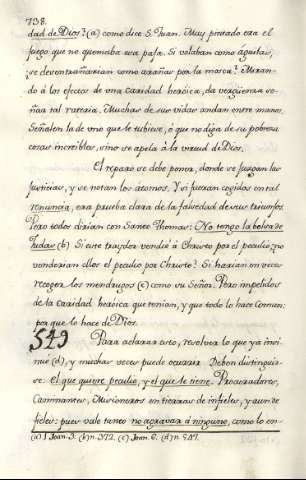 738.
dad de Dios? (a) como dice S. Juan. Muy pesado era el
fuego que no quemaba esa paja. Si volaban como aguilas,
¿se desentrañarian como arañas por la mosca? Miran-
do à los efectos de una caridad heróica, da verguenza se-
ñir tal rateria. Muchas de sus vidas andan entre manos.
Señalen la de uno que le tubiese, ó que no diga de su pobreza
cosas increibles, sino se apela à la virtud de Dios.
El reparo se debe poner, donde se juzgan las
justicias, y se notan los atomos. Y si fueran cogidos en tal
renuncia, era prueba clara de la falsedad de sus triunfos.
Pero todos dirian con Santo Thomas: No tengo la bolsa de
Judas (b) Si este traydor vendió à Christo por el peculio ¿no
venderian ellos el peculio por Christo? Si harian en vez de
recoger los mendrugos (c) como su Señor. Pero impelidos
de la caridad heróica que tenian, y que todo lo hace comun:
porque lo hace de Dios.
549 Para aclarar esto, resolvera lo que ya insi-
nue (d), y muchas veces puede ocurrir. Deben distinguir-
se: El que quiere peculio, y el que le tiene. Procuradores,
Caminantes, Misioneros en tierras de infieles, y aun de
fieles: pues vale tanto no agravar á ninguno, como lo en-
(a) 1 Joan. 3. (b) n. 372. (c) Joan. 6. (d) n. 547.